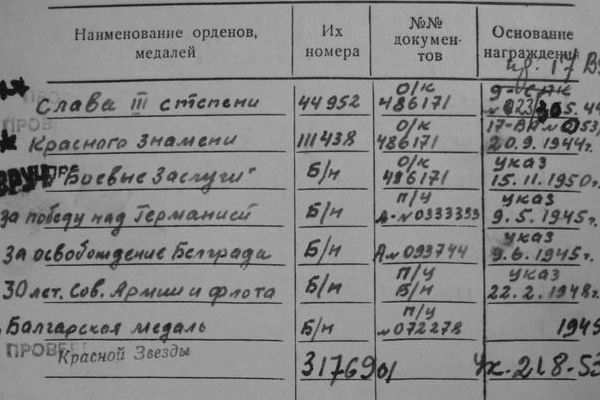 Наименование орденов, медалей
Их номера
№№ документов
Основание награждения
Слава III степени 44952 о/к 486171
Красного Знамени 111438 о/к 486171 20.9.1944г.
"Боевые Заслуги" Б/н о/к 486171 указ 15.11.1950г.
За победу над Германией Б/н п/у А-№0333399 указ 9.5.1945г.
За освобождение Белграда Б/н А№093744 указ 9.6.1945г.
30 лет. Сов. Армии и флота Б/н п/у Б/н указ 22.2.1948г.
Балгарская медаль Б/н п/у №072278 1945
ПРОВЕ
Красной Звезды 317690 Ук. 21.8.53